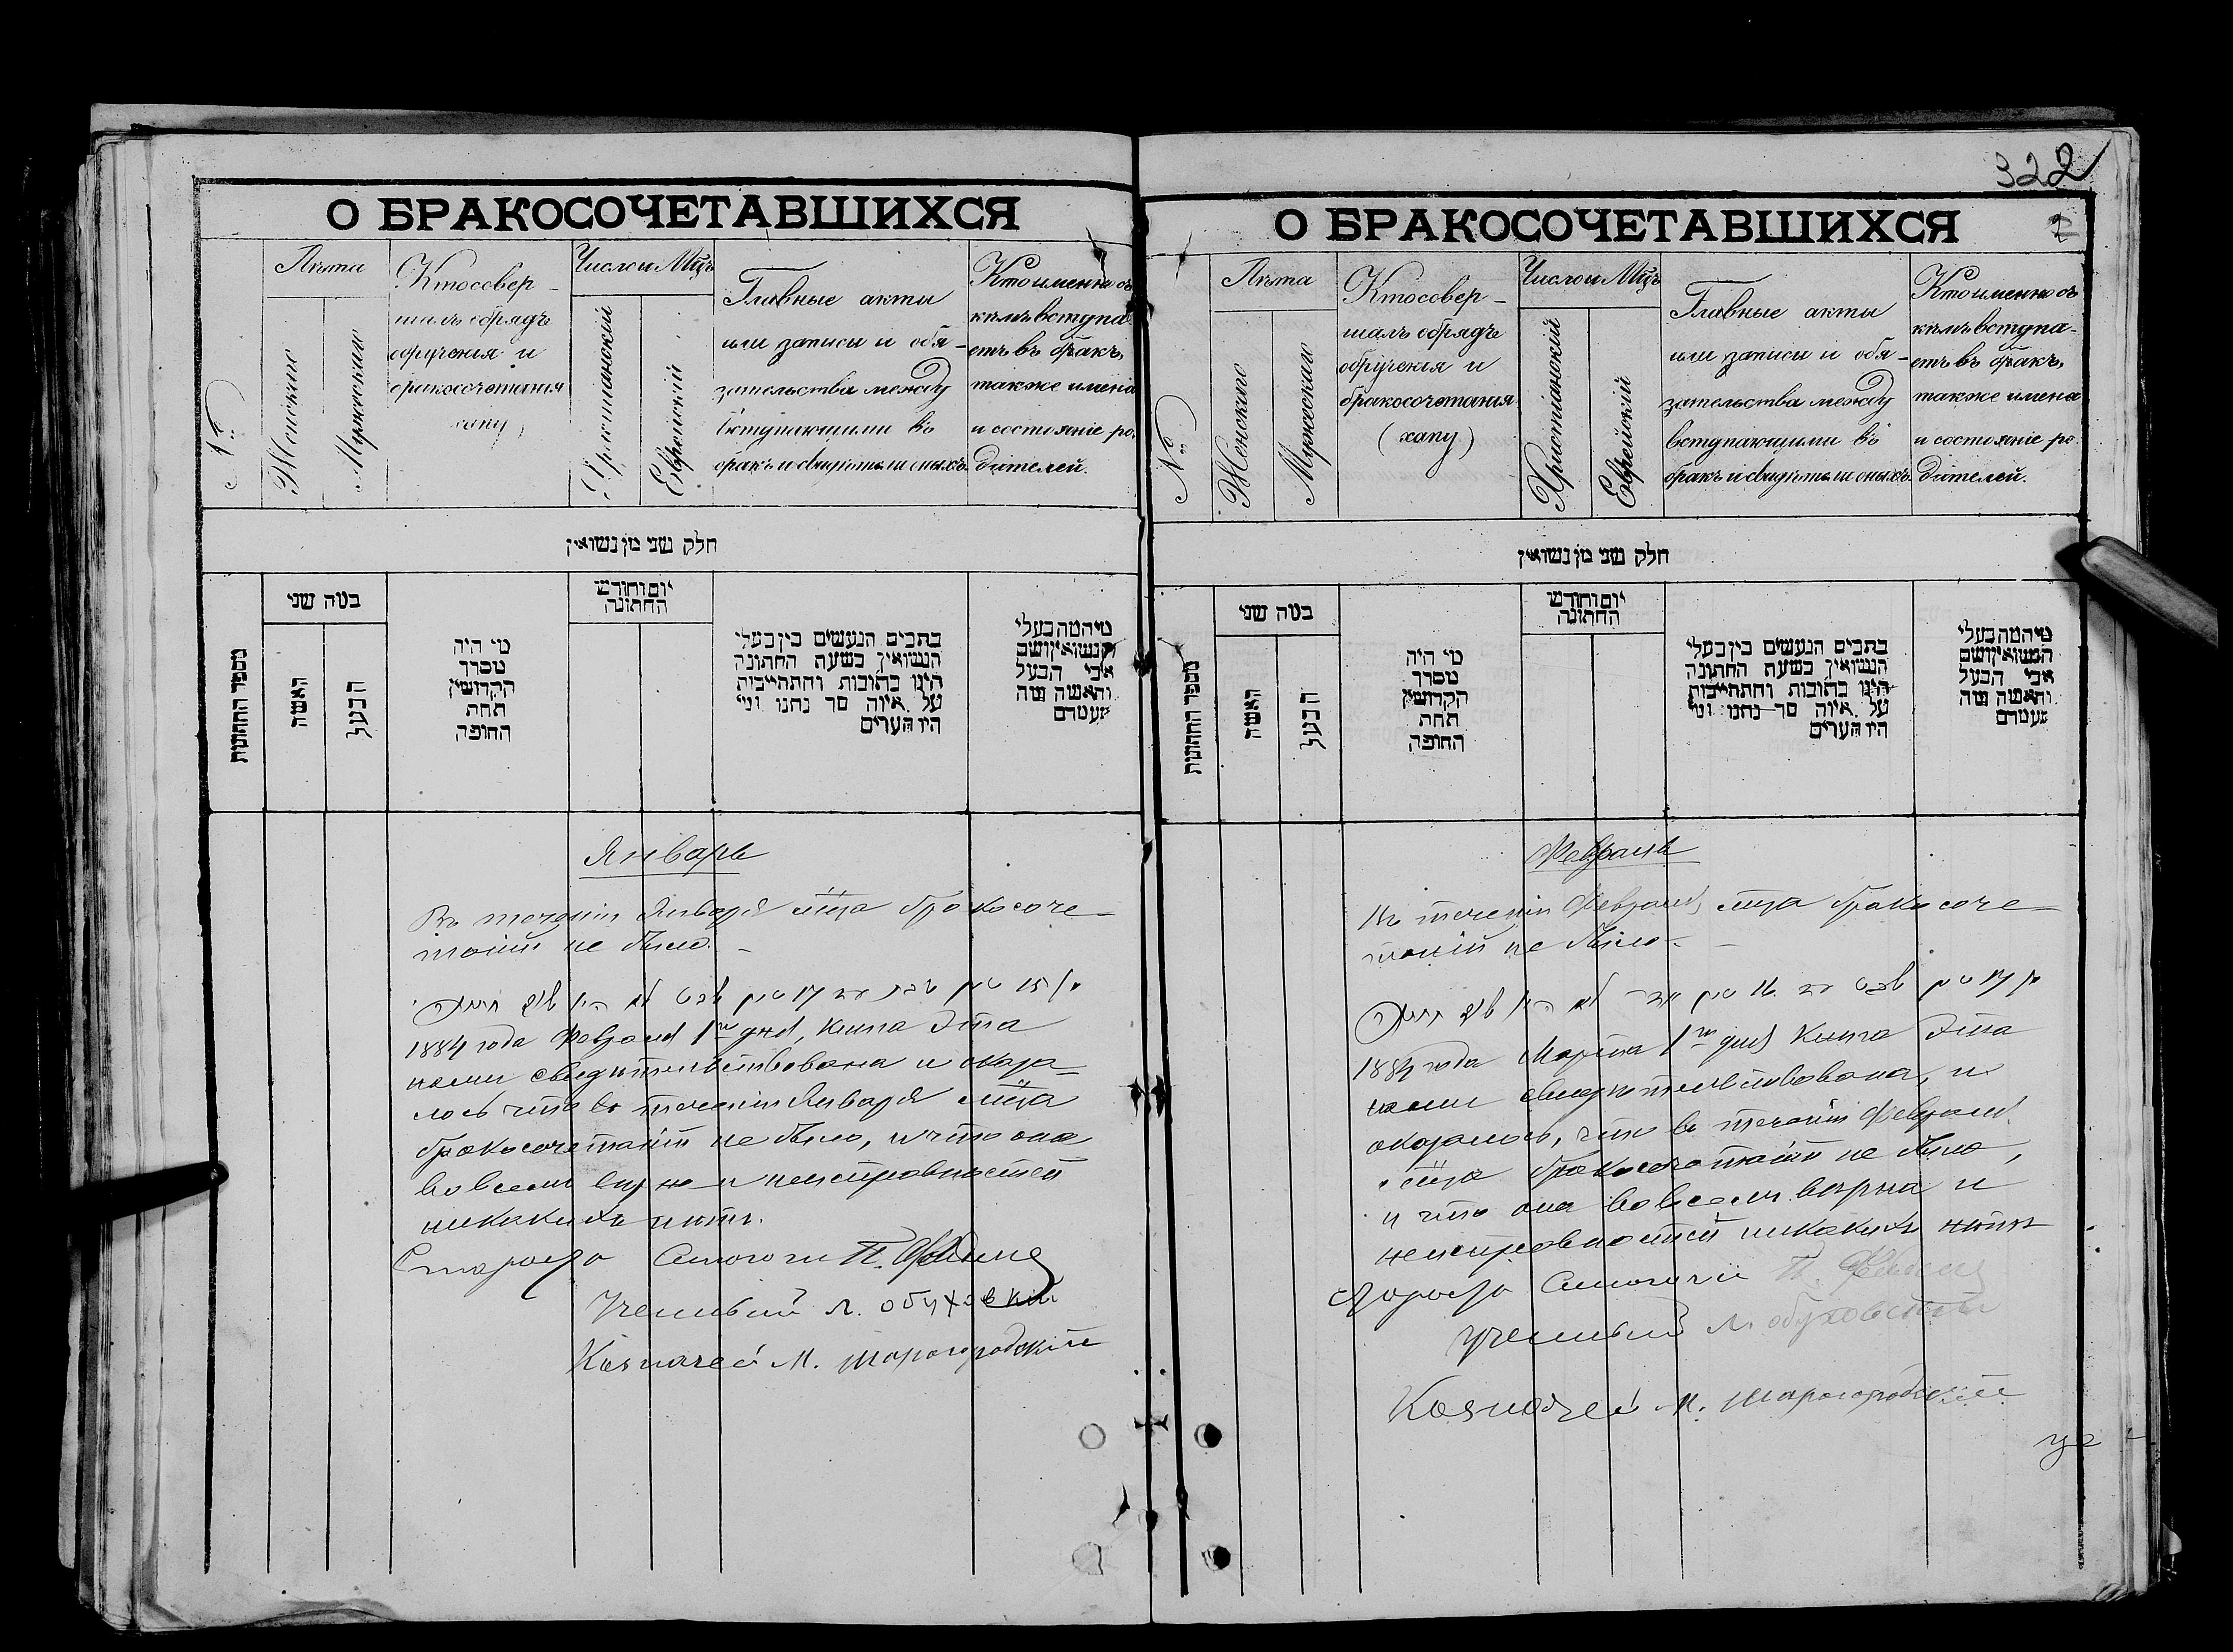 О БРАКОСОЧЕТАВШИХСЯ
№
Лѣта
Женскаго
Мужескаго
Кто совер-
шалъ обрядъ
обрученія и
бракосочетанія
(хапу)
Число и Мцъ
Христіанскій
Еврейскій
Главные акты
или записи и обя-
зательства между
вступающими въ
бракъ и свидѣтели оныхъ.
Кто именно съ
кѣмъ вступа-
етъ въ бракъ,
также имена
и состояніе ро-
дителей.
חלק שני מן נשואין
מספר החתונות
במה שני
האשה
הבעל
מי היה
מסדר
הקדושין
תחת
החופה
יום וחודש
החתונה
כתבים הנעשים בין בעלי
הנשואין בשעת החתונה
היינו כתובות והתחייבות
על איזה סך נתנו ומי
היו העדים
מי המה בעלי
הנשואין ושם
אבי הבעל
והאשה ומה
מעמדם
Январь
Въ теченіи Января мца бракосоче-
таній не было.
1884 года Февраля 1го дня, книга эта
нами свидѣтельствована и оказа-
лось что въ теченіи Января мца
бракосочетаній не было, и что она
во всемъ вѣрна и неисправностей
никакихъ нѣтъ.
Староста Синагоги П.
Ученый Л. Обуховскій
Казначей М. Шарогородскій
322
2
О БРАКОСОЧЕТАВШИХСЯ
№
Лѣта
Женскаго
Мужескаго
Кто совер-
шалъ обрядъ
обрученія и
бракосочетанія
(хапу)
Число и Мцъ
Христіанскій
Еврейскій
Главные акты
или записи и обя-
зательства между
вступающими въ
бракъ и свидѣтели оныхъ.
Кто именно съ
кѣмъ вступа-
етъ въ бракъ,
также имена
и состояніе ро-
дителей.
חלק שני מן נשואין
מספר החתונות
במה שני
האשה
הבעל
מי היה
מסדר
הקדושין
תחת
החופה
יום וחודש
החתונה
כתבים הנעשים בין בעלי
הנשואין בשעת החתונה
היינו כתובות והתחייבות
על איזה סך נתנו ומי
היו העדים
מי המה בעלי
הנשואין ושם
אבי הבעל
והאשה ומה
מעמדם
Февраль
Въ теченіи Февраля мца бракосоче-
таній не было.
1884 года Марта 1го дня книга эта
нами свидѣтельствована, и
оказалось, что въ теченіи Февраля
мца бракосочетаній не было,
и что она во всемъ вѣрна и
неисправностей никакихъ нѣтъ
Староста Синагоги П.
Ученый Л. Обуховскій
Казначей М. Шарогородскій